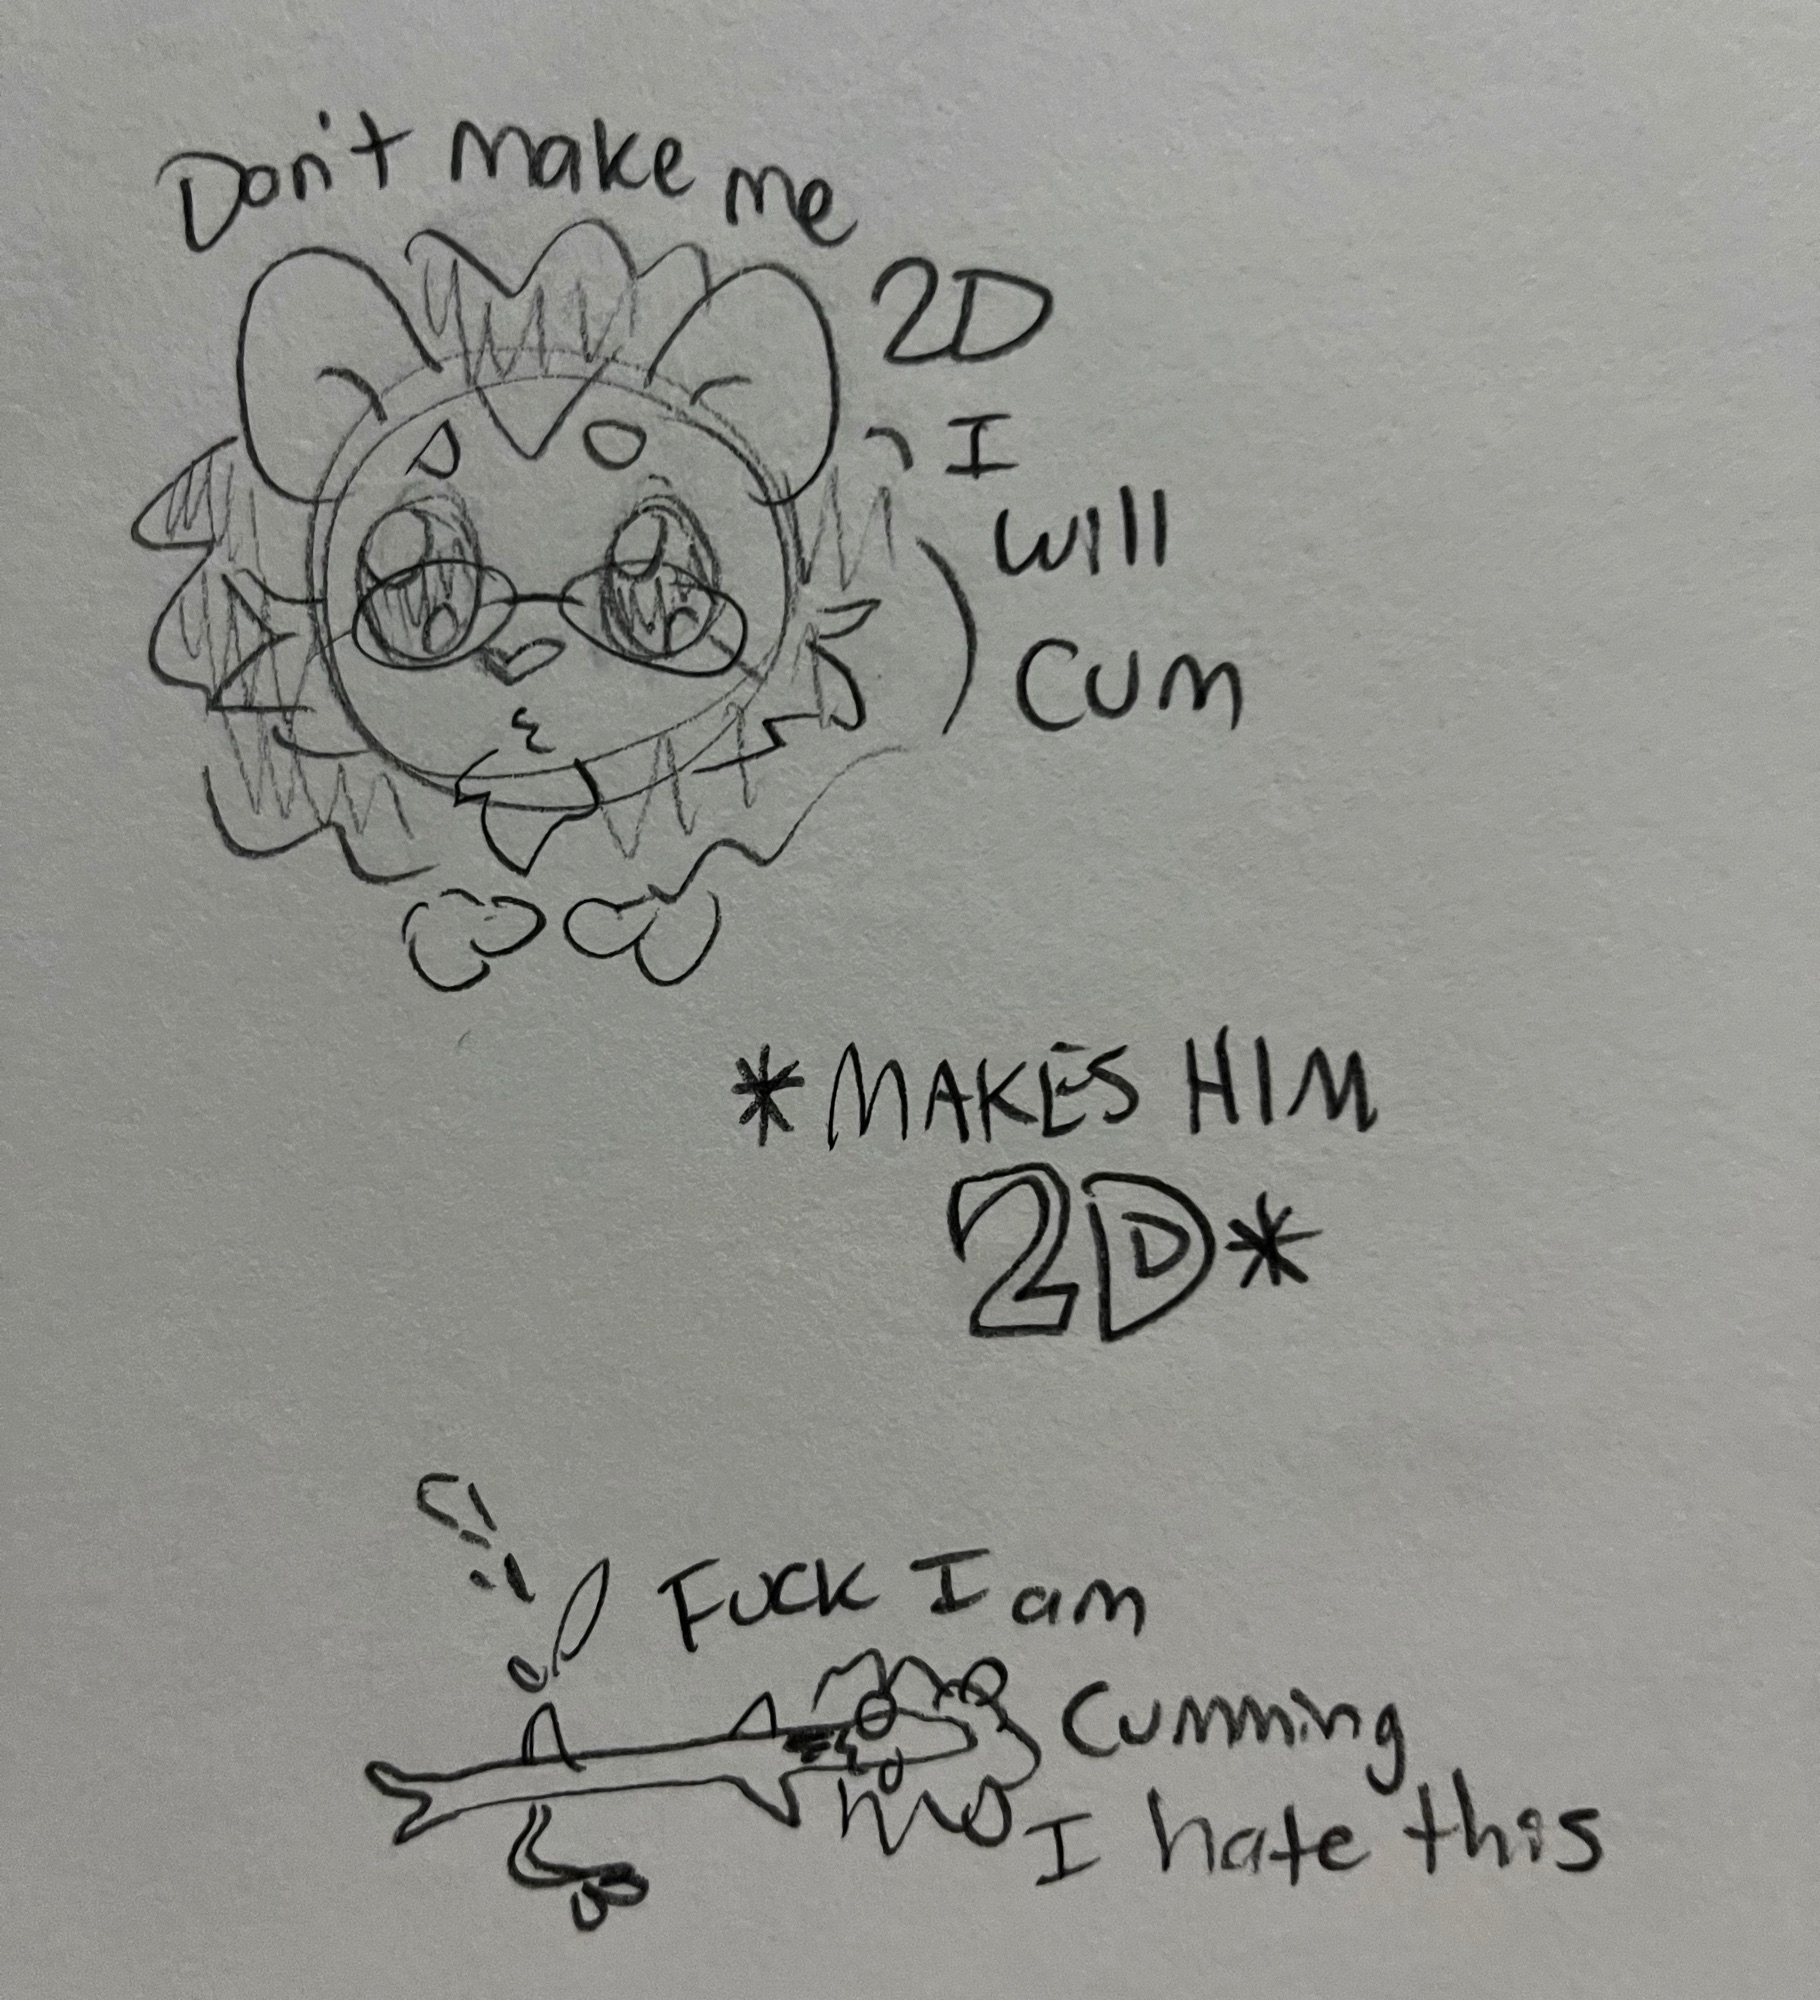 Don't make me
2D
I
will
cum
*MAKES HIM
2D*
Fuck I am
cumming
I hate this